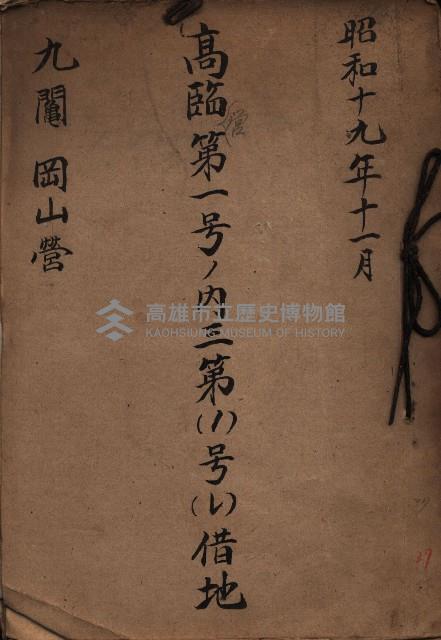 昭和十九年十一月
高臨第一号ノ内三第(イ)号(レ)借地
営
九闈岡山營
高雄市立歷史博物館
KAOHSIUNG MUSEUM OF HISTORY